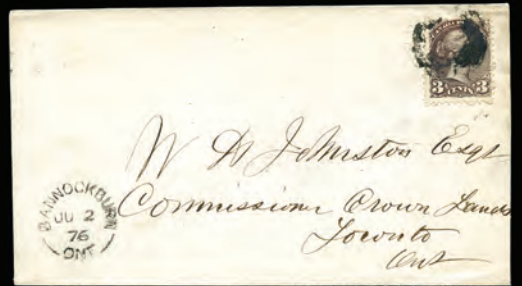 3 CENTS 3
W D Johnston Esqr
Commissioner Crown Lands
Toronto
Ont
BANNOCKBURN
JU 2
76
ONT